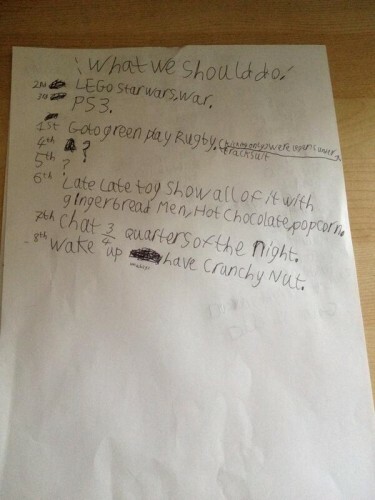 ! What we should do!
2nd LEGO star wars, war.
3rd PS3.
1st Go to green play Rugby,
tracksuit
4th ?
5th ?
6th Late late toy show all of it with
gingerbread Men, Hot Chocolate, popcorn.
7th chat 3/4 quarters of the night.
8th wake up have Crunchy Nut.